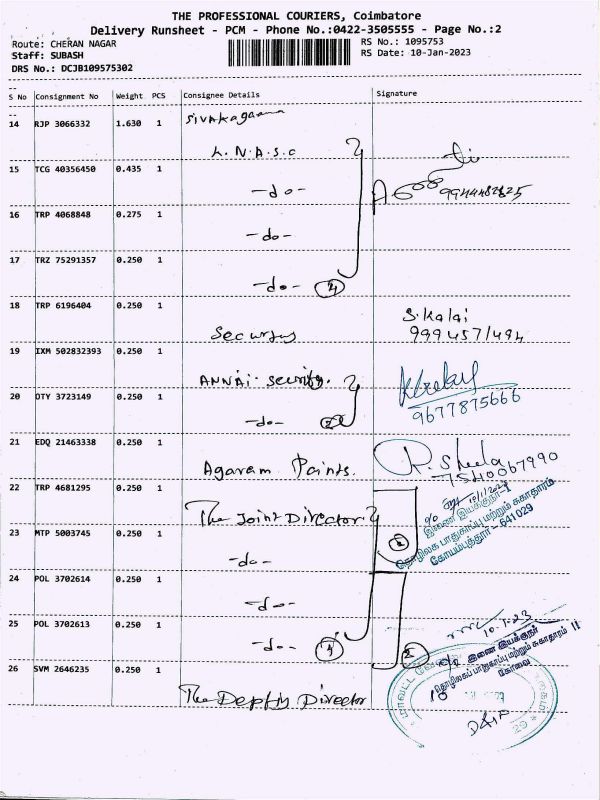 THE PROFESSIONAL COURIERS, Coimbatore
Delivery Runsheet - PCM - Phone No.:0422-3505555 - Page No.:2
Route: CHERAN NAGAR
RS No.: 1095753
Staff: SUBASH
RS Date: 10-Jan-2023
DRS No.: DCJB109575302
S No Consignment No Weight PCS Consignee Details Signature
14 RJP 3066332 1.630 1
L.N.A.S.C
15 TCG 40356450 0.435 1
-do-
16 TRP 4068848 0.275 1
-do-
17 TRZ 75291357 0.250 1
-do- 4
18 TRP 6196404 0.250 1
S.Kalai
9994571494
19 IXM 502832393 0.250 1
ANNAI. Security.
20 OTY 3723149 0.250 1
-do- 2
9677875666
21 EDQ 21463338 0.250 1
Agaram Paints.
R. Sheela
7540067990
22 TRP 4681295 0.250 1
The Joint Director
10/1/2023
இணை இயக்குநர்-I
தொழிலக பாதுகாப்பு மற்றும் சுகாதாரம்
கோயம்புத்தூர் - 641029
23 MTP 5003745 0.250 1
-do-
24 POL 3702614 0.250 1
-do-
25 POL 3702613 0.250 1
-do- 4
2
10.1.23
இணை இயக்குநர்
தொழிலகப் பாதுகாப்பு மற்றும் சுகாதாரம் II
கோவை
26 SVM 2646235 0.250 1
The Depty Director
10